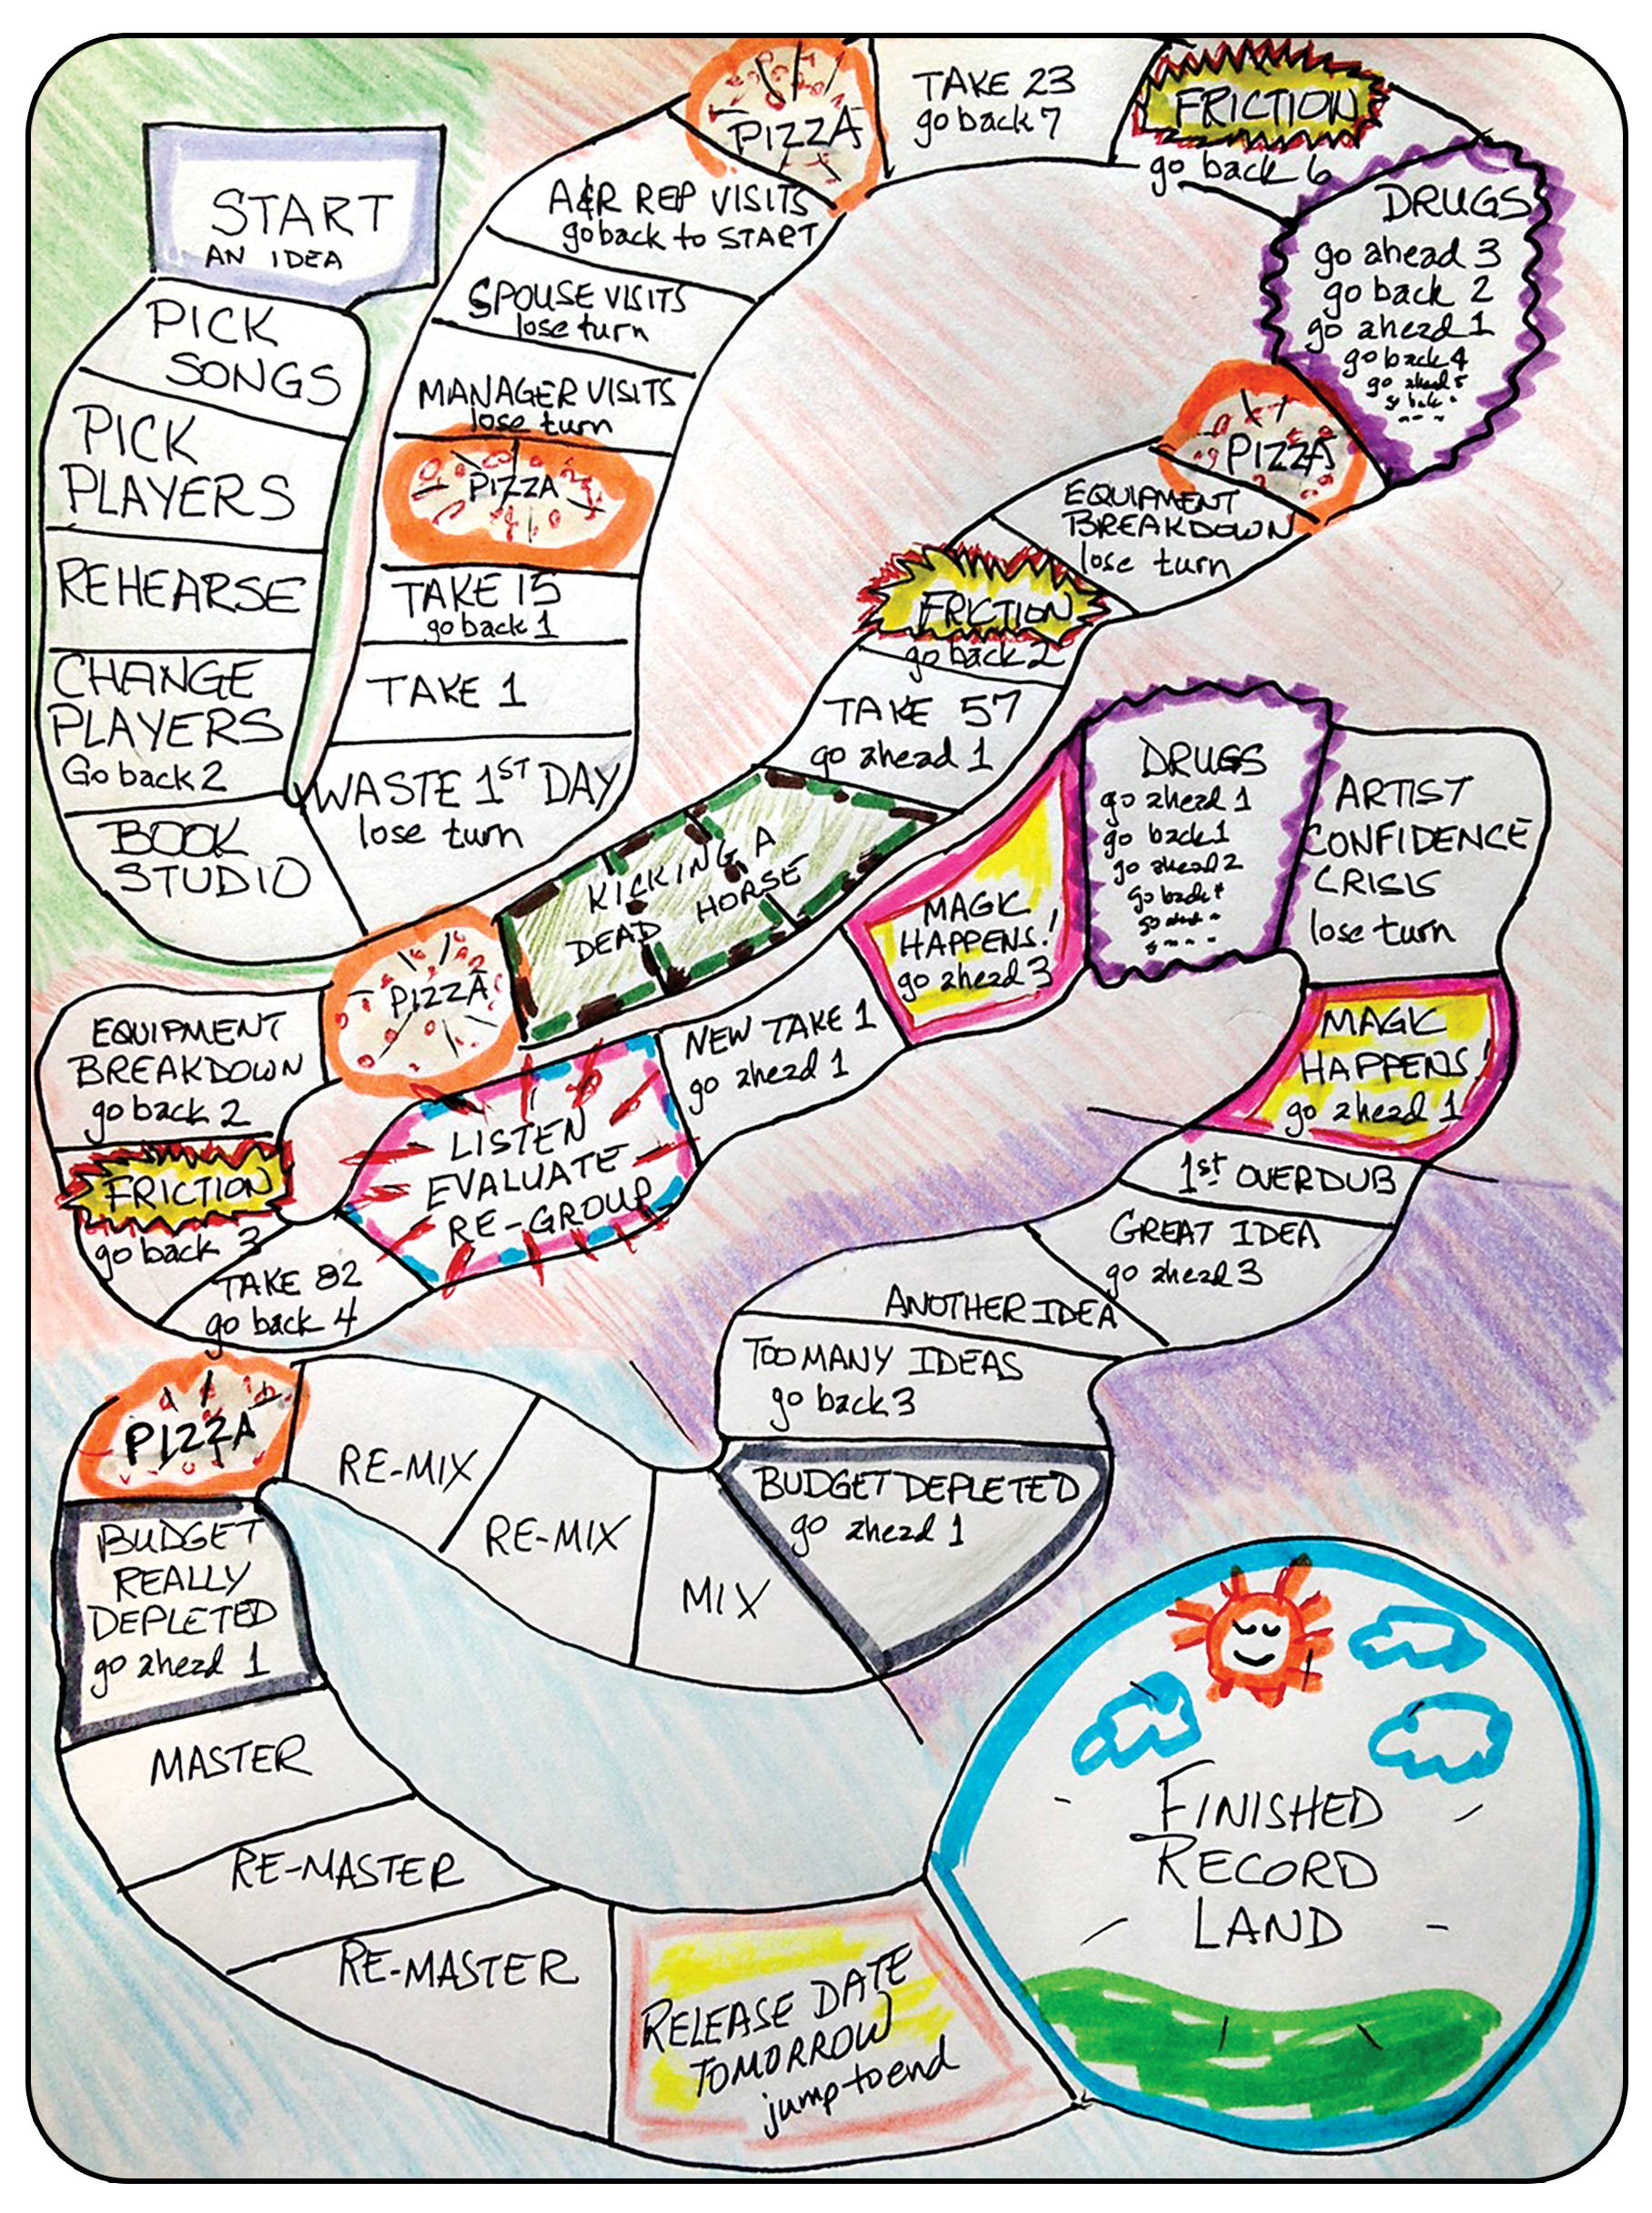 START
AN IDEA
PICK
SONGS
PICK
PLAYERS
REHEARSE
CHANGE
PLAYERS
Go back 2
BOOK
STUDIO
WASTE 1ST DAY
lose turn
TAKE 1
TAKE 15
go back 1
PIZZA
MANAGER VISITS
lose turn
SPOUSE VISITS
lose turn
A&R REP VISITS
go back to START
PIZZA
TAKE 23
go back 7
FRICTION
go back 6
DRUGS
go ahead 3
go back 2
go ahead 1
go back 4
go ahead 5
go back
PIZZA
EQUIPMENT
BREAKDOWN
lose turn
FRICTION
go back 2
TAKE 57
go ahead 1
KICKING A
DEAD HORSE
PIZZA
EQUIPMENT
BREAKDOWN
go back 2
FRICTION
go back 3
TAKE 82
go back 4
LISTEN
EVALUATE
RE-GROUP
NEW TAKE 1
go ahead 1
MAGIC
HAPPENS!
go ahead 3
DRUGS
go ahead 1
go back 1
go ahead 2
go back
ARTIST
CONFIDENCE
CRISIS
lose turn
MAGIC
HAPPENS!
go ahead 1
1st OVERDUB
GREAT IDEA
go ahead 3
ANOTHER IDEA
TOO MANY IDEAS
go back 3
BUDGET DEPLETED
go ahead 1
MIX
RE-MIX
RE-MIX
PIZZA
BUDGET
REALLY
DEPLETED
go ahead 1
MASTER
RE-MASTER
RE-MASTER
RELEASE DATE
TOMORROW
jump to end
FINISHED
RECORD
LAND